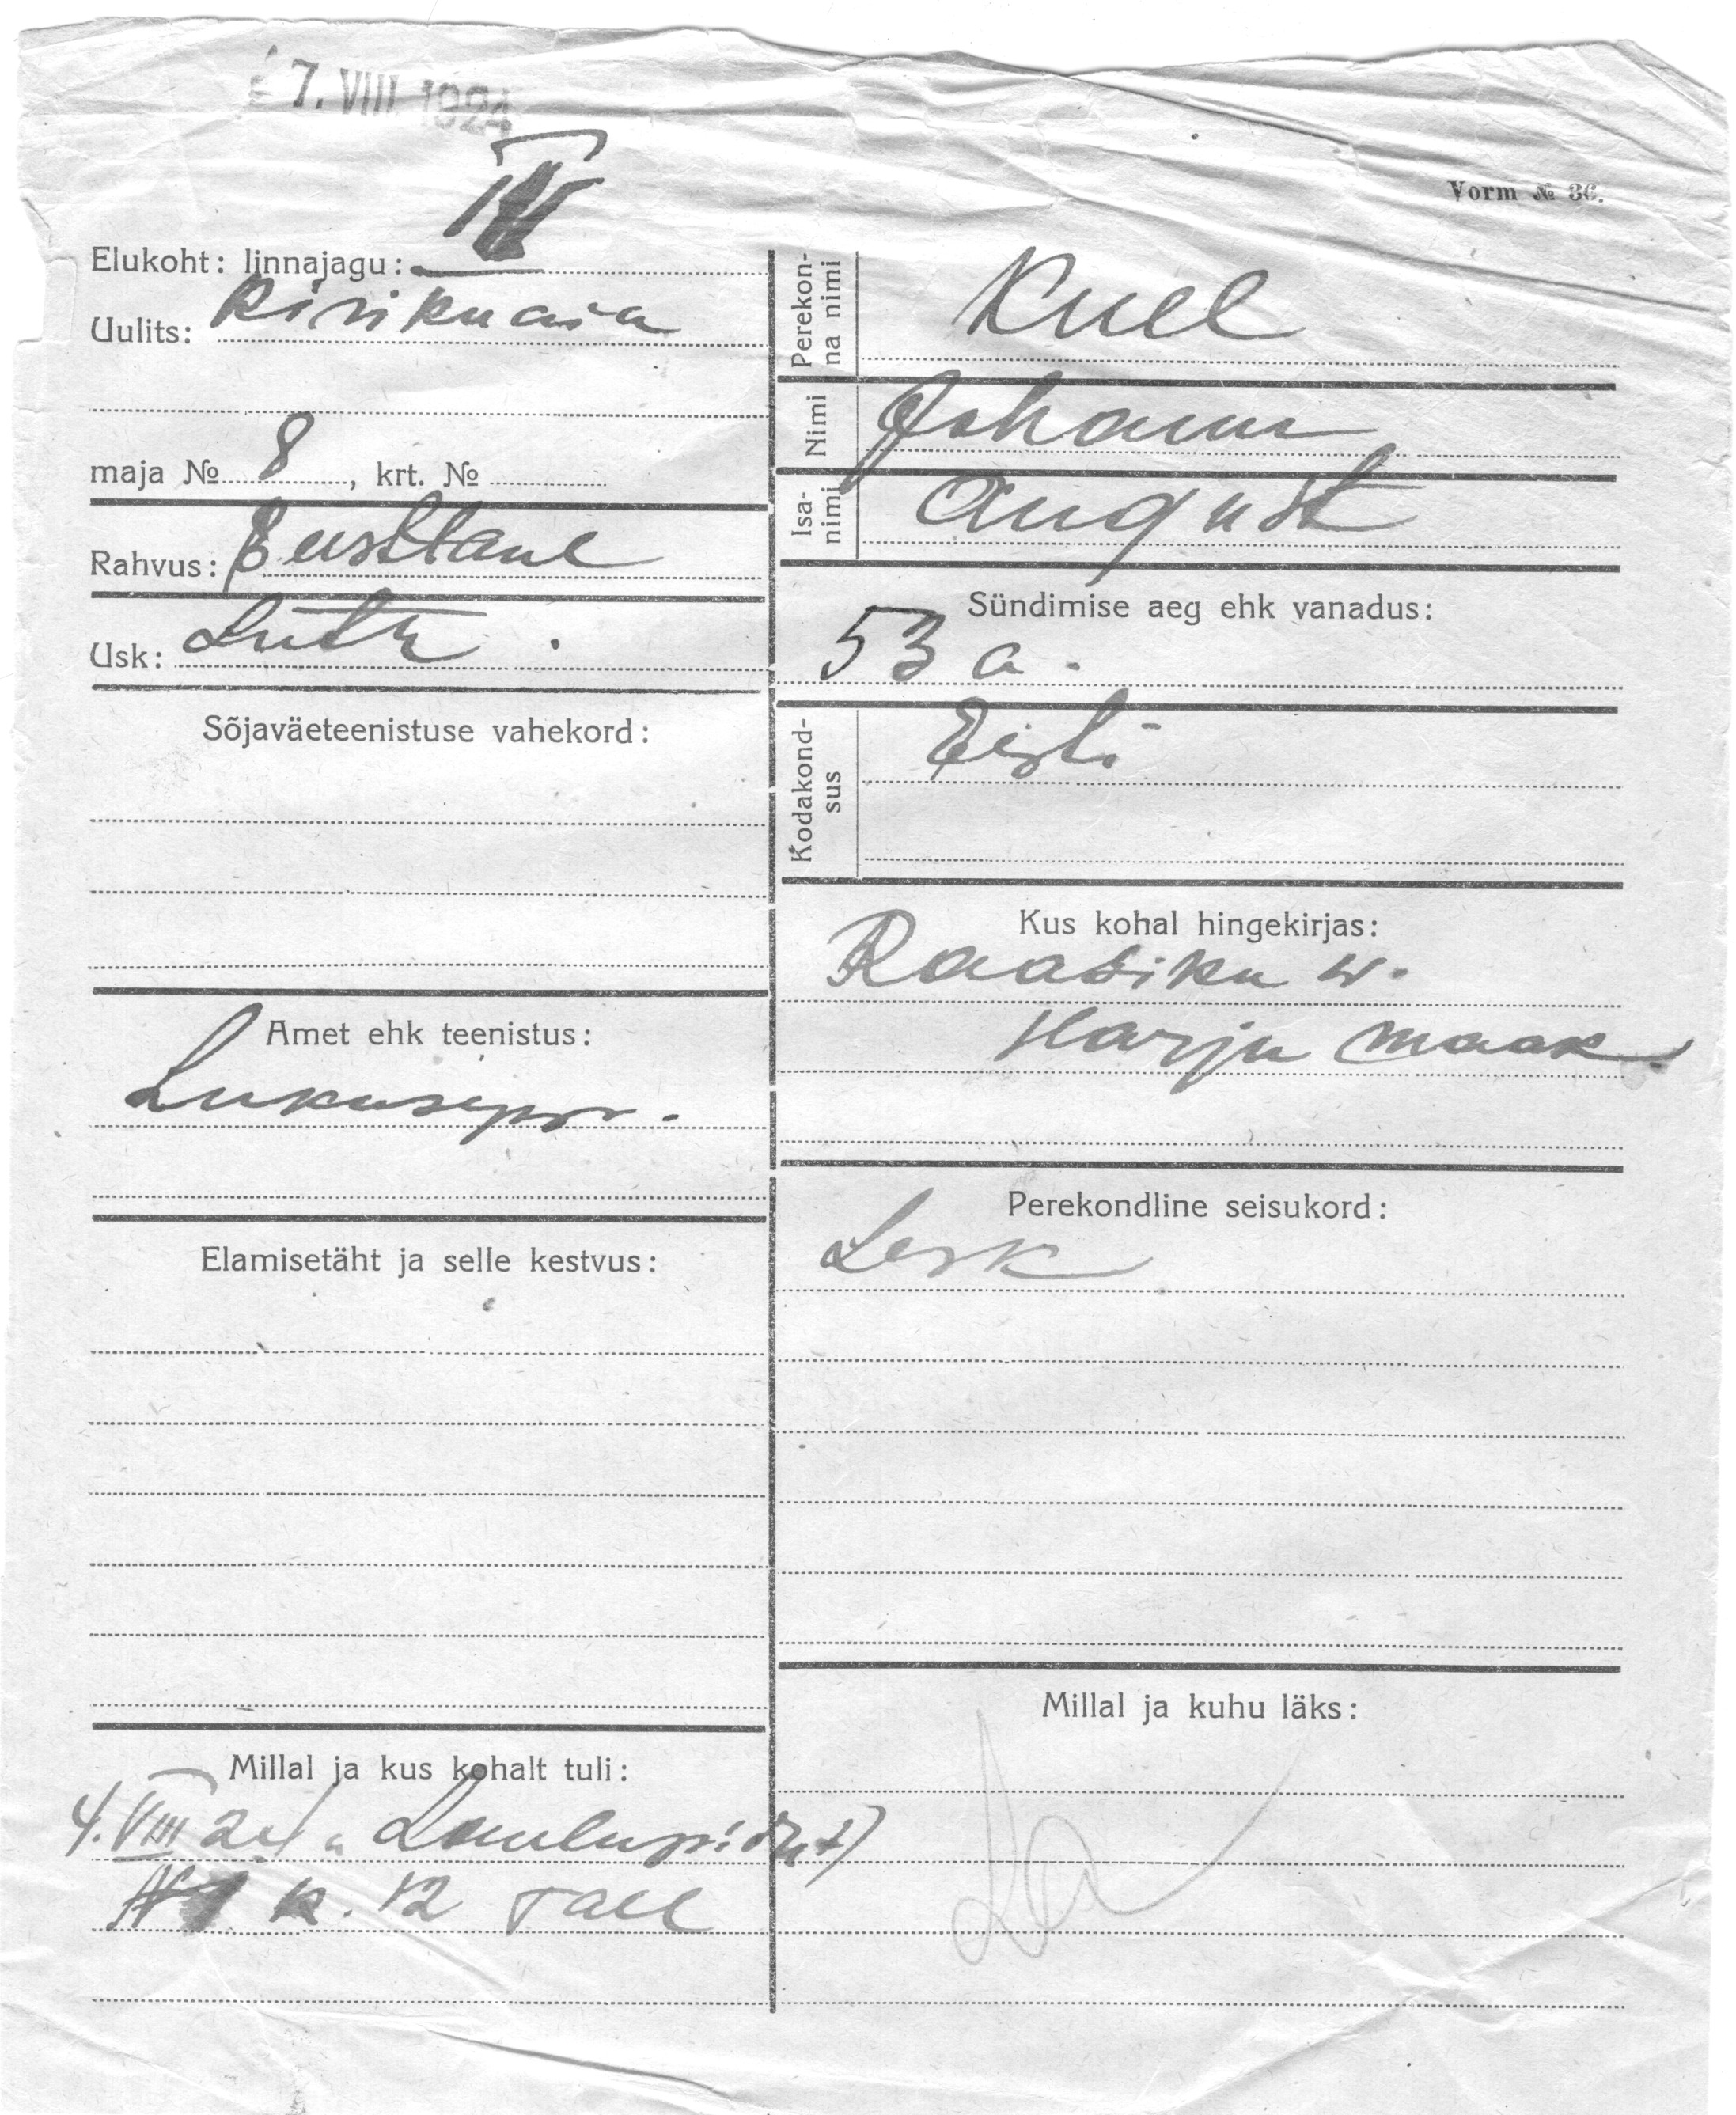 7. VIII 1924
Vorm № 36.
Elukoht: linnajagu: IV
Uulits: Kirikuaia
maja № 8, krt. №
Rahvus: Eestlane
Usk: Luth.
Sõjaväeteenistuse vahekord:
Amet ehk teenistus:
Lukusepp.
Elamisetäht ja selle kestvus:
Millal ja kus kohalt tuli:
4. VIII 24 a Laulupidu t)
k. 12 Tall
Perekonna nimi Kull
Nimi Johann
Isanimi August
Sündimise aeg ehk vanadus:
53 a.
Kodakondsus Eesti
Kus kohal hingekirjas:
Raasiku w.
Harju maak.
Perekondline seisukord:
Lesk
Millal ja kuhu läks: